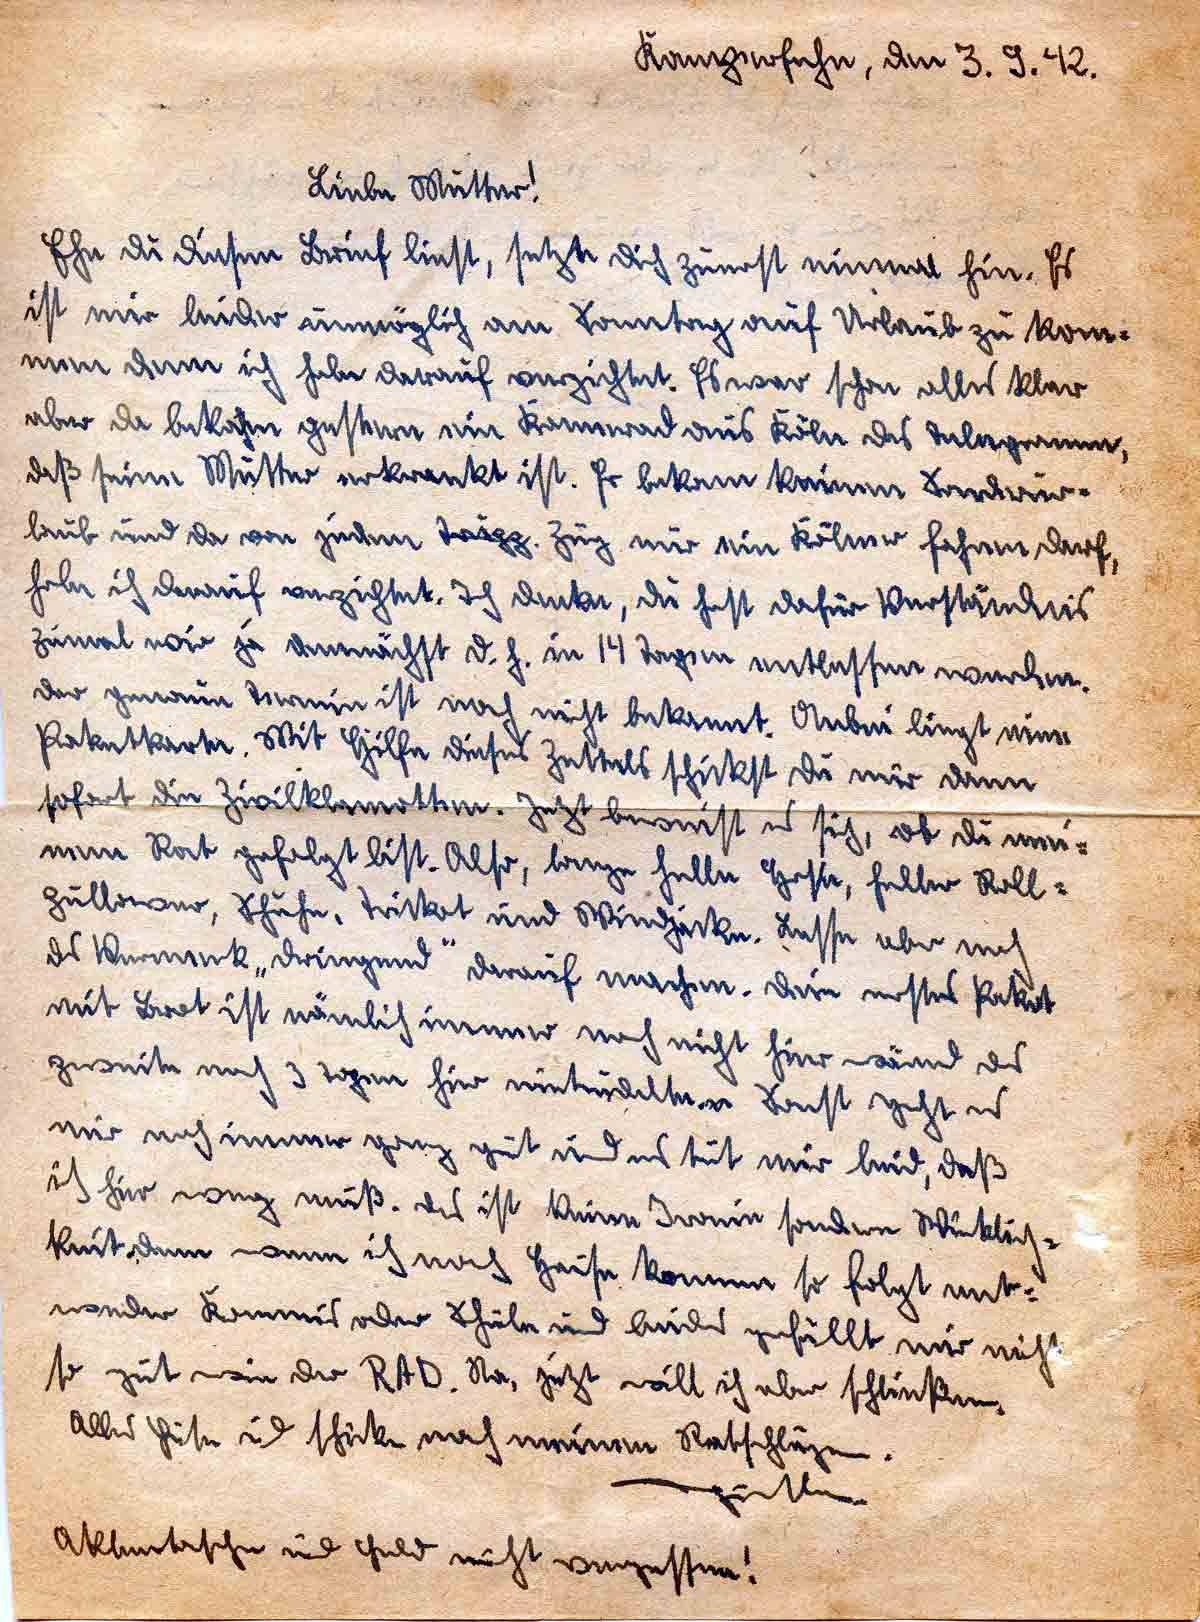 Kamperfehn, den 3. 9. 42.
Liebe Mutter!
Ehe du diesen Brief liest, setzte dich zuerst einmal hin. Es
ist mir leider unmöglich am Sonntag auf Urlaub zu kom-
men denn ich habe darauf verzichtet. Es war schon alles klar
aber da bekam gestern ein Kamerad aus Köln das Telegramm,
daß seine Mutter erkrankt ist. Er bekam keinen Sonderur-
laub und da von jedem Zug nur ein Kölner fahren darf,
habe ich darauf verzichtet. Ich denke, du hast dafür Verständnis
zumal wir ja demnächst d. h. in 14 Tagen entlassen werden.
der genaue Termin ist noch nicht bekannt. Anbei liegt eine
Paketkarte. Mit Hilfe dieses Zettels schickst du mir dann
sofort die Zivilklamotten. Jetzt beweist es sich, ob du mei-
nem Rat gefolgt bist. Also, lange helle Hose, heller Roll-
pullower, Schuhe, Trikot und Windjacke. Lasse aber noch
ds Vermerk „dringend" darauf machen. dein erstes Paket
mit Brot ist nämlich immer noch nicht hier wärend das
zweite nach 3 Tagen hier eintrudelte. Sonst geht es
mir noch immer ganz gut und es tut mir leid, daß
ich hier weg muß. das ist keine Ironie sondern Wirklich-
keit, denn wenn ich nach Hause komme so folgt ent-
weder Kommis oder Schule und beides gefällt mir nicht
so gut wie der RAD. Na, jetzt will ich aber schließen.
Alles Gute ud schicke nach meinen Ratschlägen.
Aktentasche ud Geld nicht vergessen!